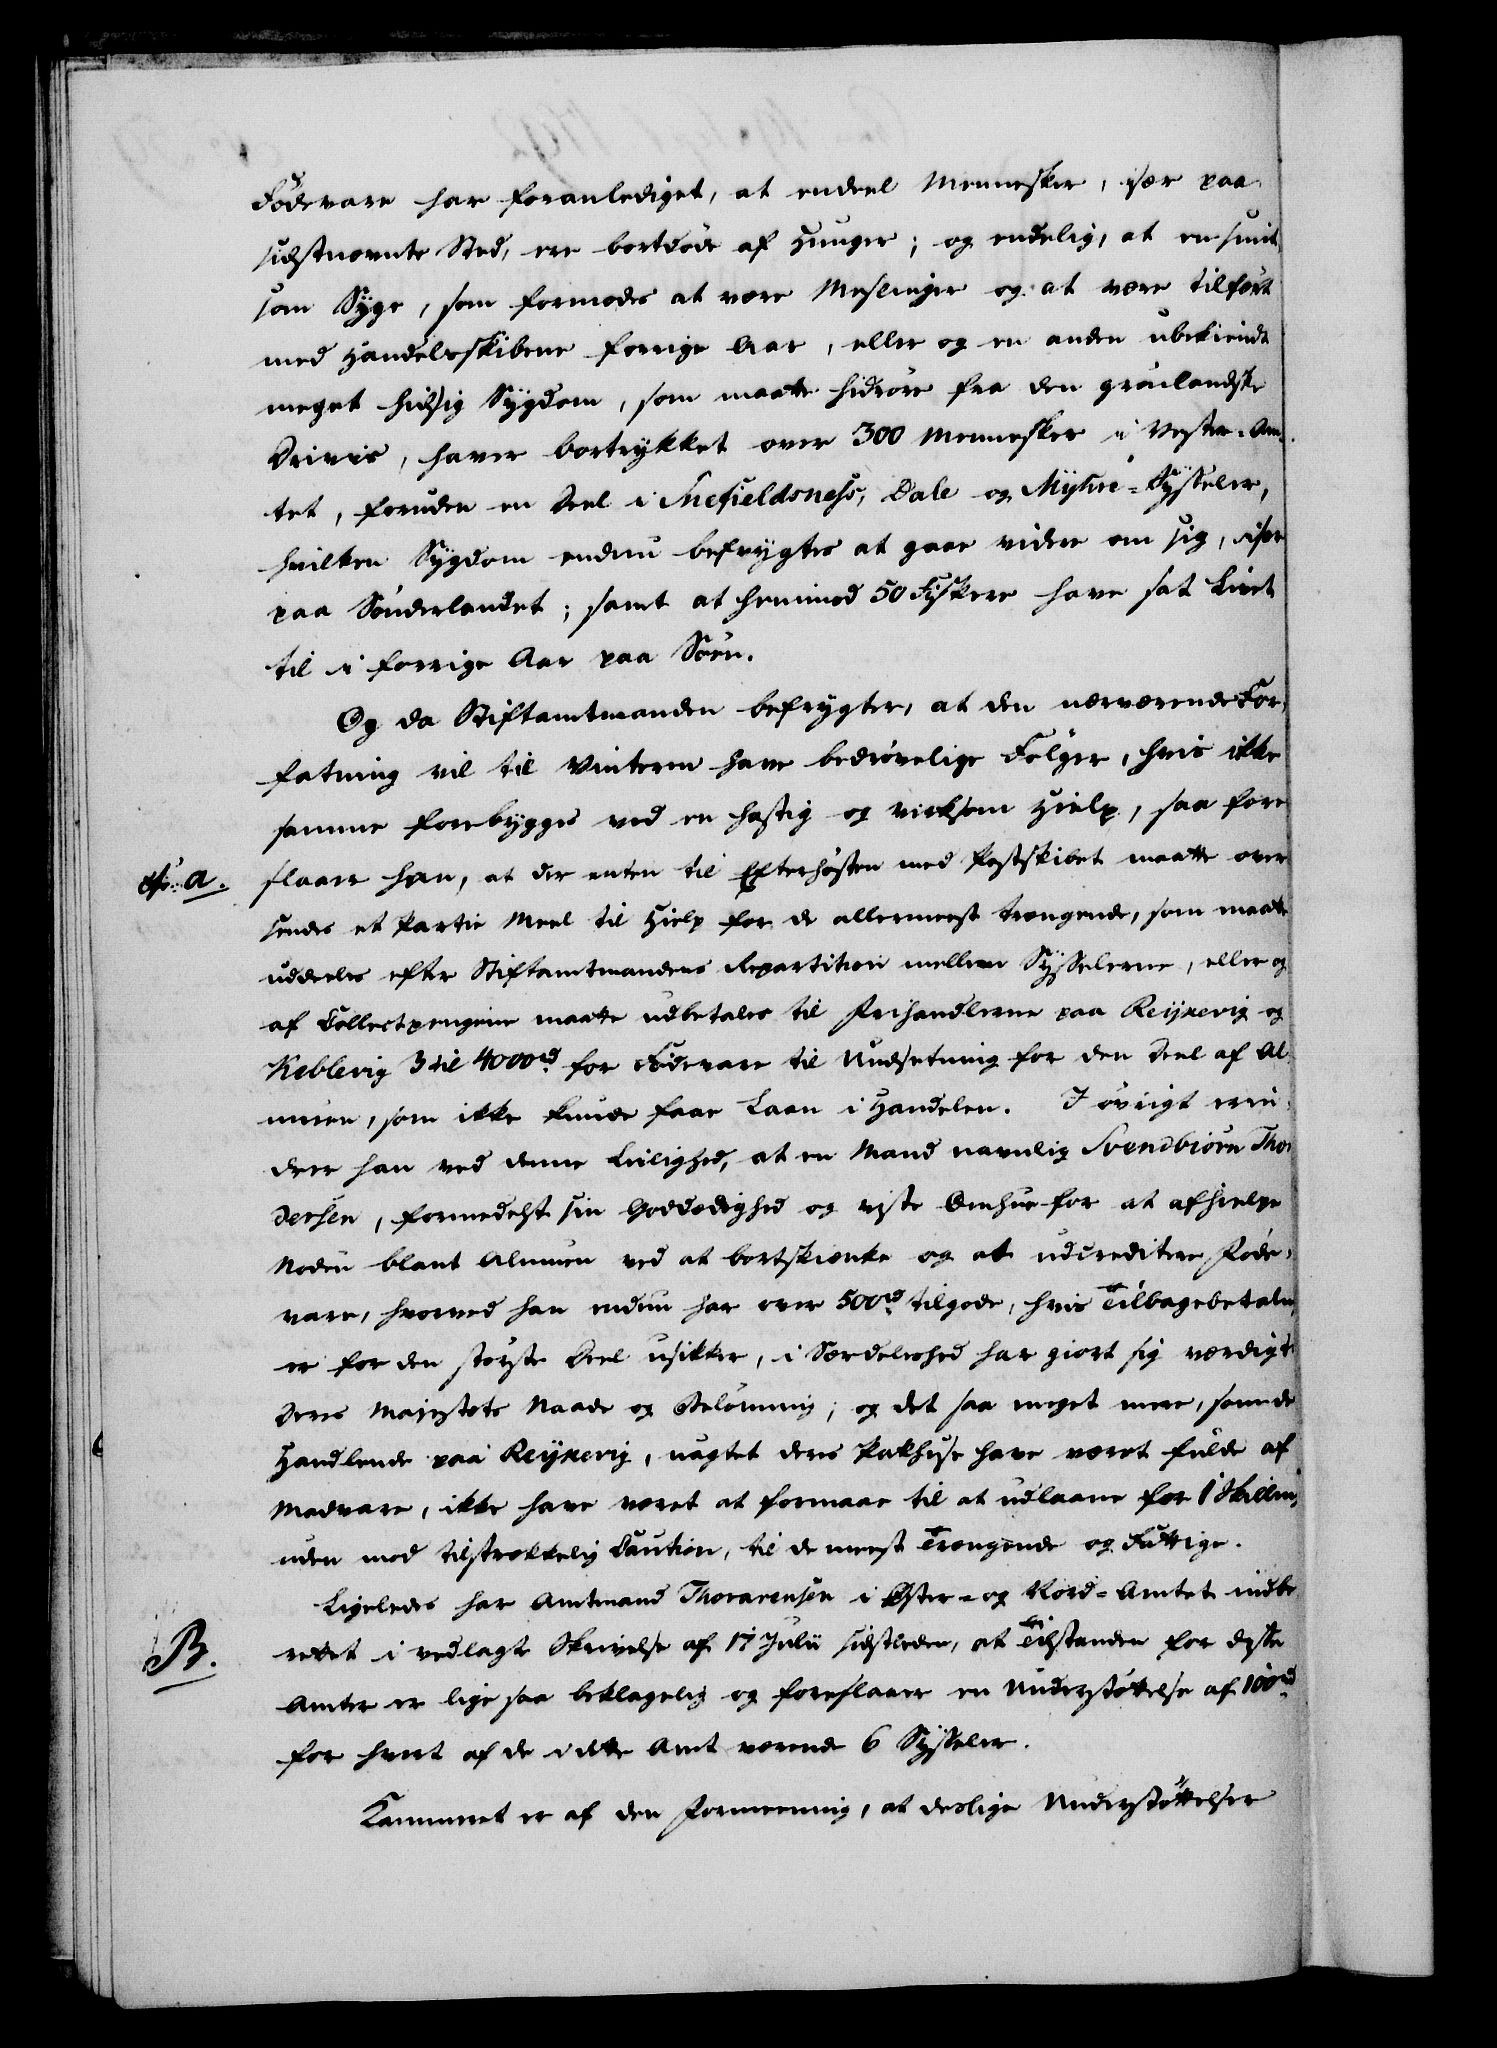 Födevare har foranlediget, at endeel Mennesker, især paa
sidstnævnte Sted, ere bortdöde af Hunger; og endelig, at en smit-
som Syge, som formodes at være Meslinger og at være tilfört
med Handelsskibene forrige Aar, eller og en anden ubekiendt
meget hidsig Sygdom, som maatte hidröre fra den grönlandske
Driviis, haver bortrykket over 300 Mennesker i Vester-Am-
tet, foruden en Deel i Snefieldsness, Dale og Myhre-Sysseler,
hvilken Sygdom endnu befrygtes at gaae videre om sig, især
paa Sönderlandet; samt at henimod 50 Fiskere have sat Livet
til i forrige Aar paa Söen.
Og da Stiftamtmanden befrygter, at den nærværende For-
fatning vil til Vinteren have bedrövelige Fölger, hvis ikke
samme forebygges ved en hastig og virksom Hielp, saa fore-
slaaer han, at der enten til Efterhösten med Postskibet maatte over-
sendes et Partie Meel til Hielp for de allermeest trængende, som maatte
uddeeles efter Stiftamtmandens Repartition mellem Sysselerne, eller og
af Collectpengene maatte udbetales til Frihandlerne paa Reikevig og
Keblevig 3 til 4000 rd for Födevare til Undsetning for den Deel af Al-
muen, som ikke kunde faae Laan i Handelen. I övrigt erin-
drer han ved denne Leilighed, at en Mand navnlig Svendbiörn Thor-
dersen, formedelst sin Goddædighed og viste Omhue for at afhielpe
Nöden blant Almuen ved at bortskienke og at udcreditere Föde-
vare, hvorved han endnu har over 500 rd tilgode, hvis Tilbagebetaling
er for den störste Deel usikker, i Særdeleshed har giort sig værdig til
Deres Majestæts Naade og Belönning; og det saa meget mere, som de
Handlende paa Reikevig, uagtet deres Pakhuse have været fulde af
Madvare, ikke have været at formaae til at udlaane for 1 Skilling,
uden mod tilstrækkelig Caution, til de meest Trængende og Fattige.
Ligeledes har Amtmand Thorarensen i Öster- og Nord-Amtet indbe-
rettet i vedlagte Skrivelse af 17 Julii sidstleden, at Tilstanden for disse
Amter er lige saa beklagelig og foreslaaer en Understöttelse af 100 rd
for hvert af de i dette Amt værende 6 Sysseler.
Kammeret er af den Formeening, at deslige Understöttelser
a.
B.